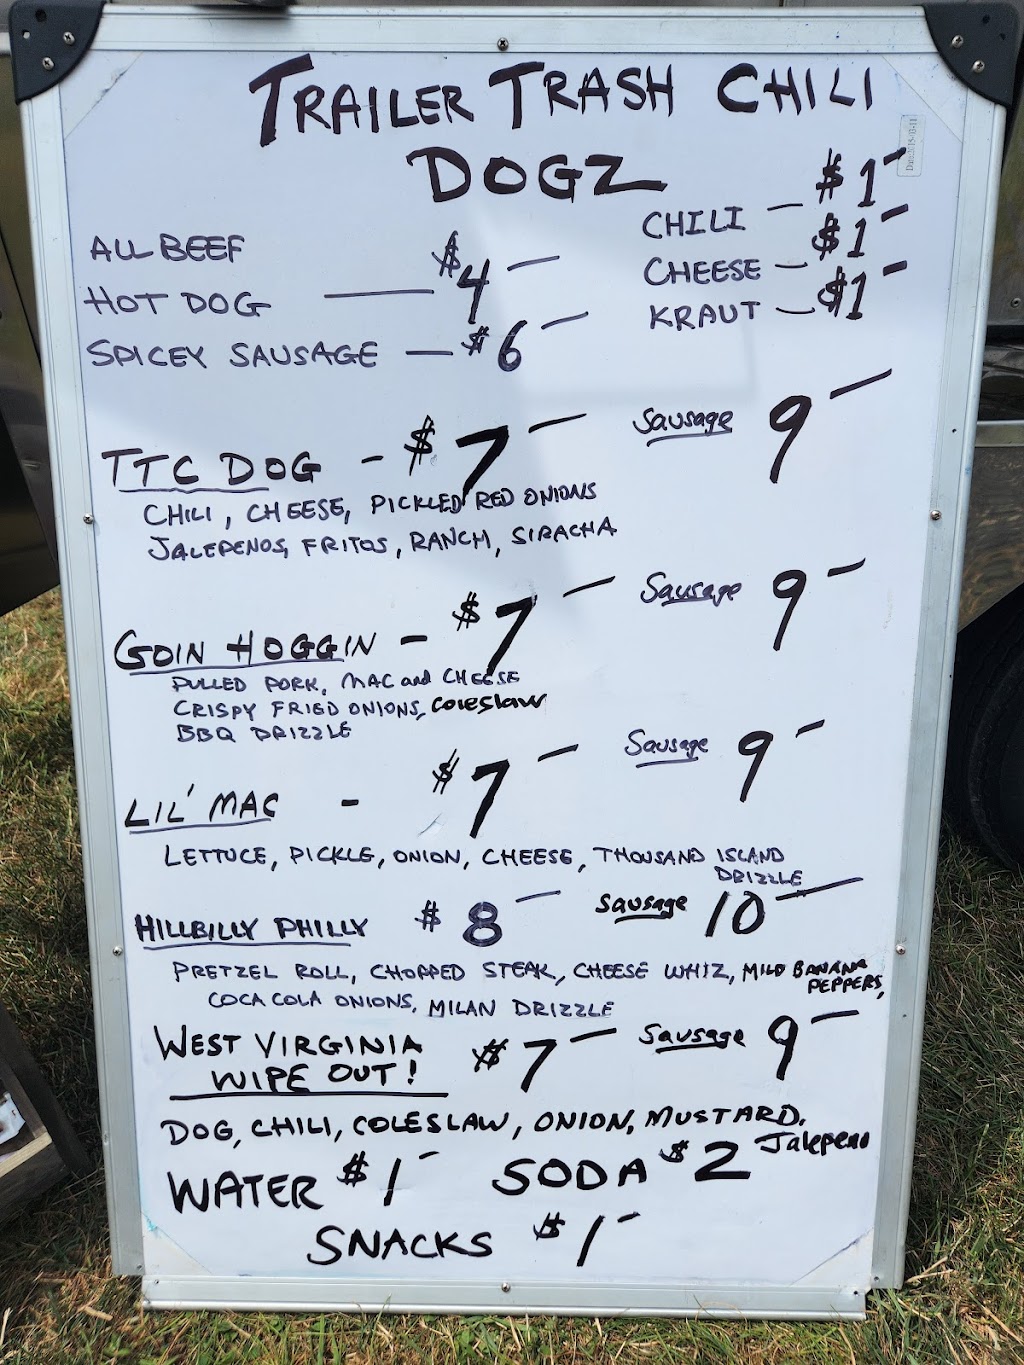 TRAILER TRASH CHILI
DOGZ
ALL BEEF
HOT DOG — $4 —
SPICEY SAUSAGE — $6 —
CHILI — $1 —
CHEESE — $1 —
KRAUT — $1 —
TTC DOG - $7 — Sausage 9 —
CHILI, CHEESE, PICKLED RED ONIONS
JALEPENOS, FRITOS, RANCH, SIRACHA
GOIN HOGGIN - $7 — Sausage 9 —
PULLED PORK, MAC and CHEESE
CRISPY FRIED ONIONS, coleslaw
BBQ DRIZZLE
LIL' MAC - $7 — Sausage 9 —
LETTUCE, PICKLE, ONION, CHEESE, THOUSAND ISLAND
DRIZZLE
HILLBILLY PHILLY $8 — Sausage 10 —
PRETZEL ROLL, CHOPPED STEAK, CHEESE WHIZ, MILD BANANA
PEPPERS,
COCA COLA ONIONS, MILAN DRIZZLE
WEST VIRGINIA
WIPE OUT! $7 — Sausage 9 —
DOG, CHILI, COLESLAW, ONION, MUSTARD,
Jalepeno
WATER $1 — SODA $2
SNACKS $1 —